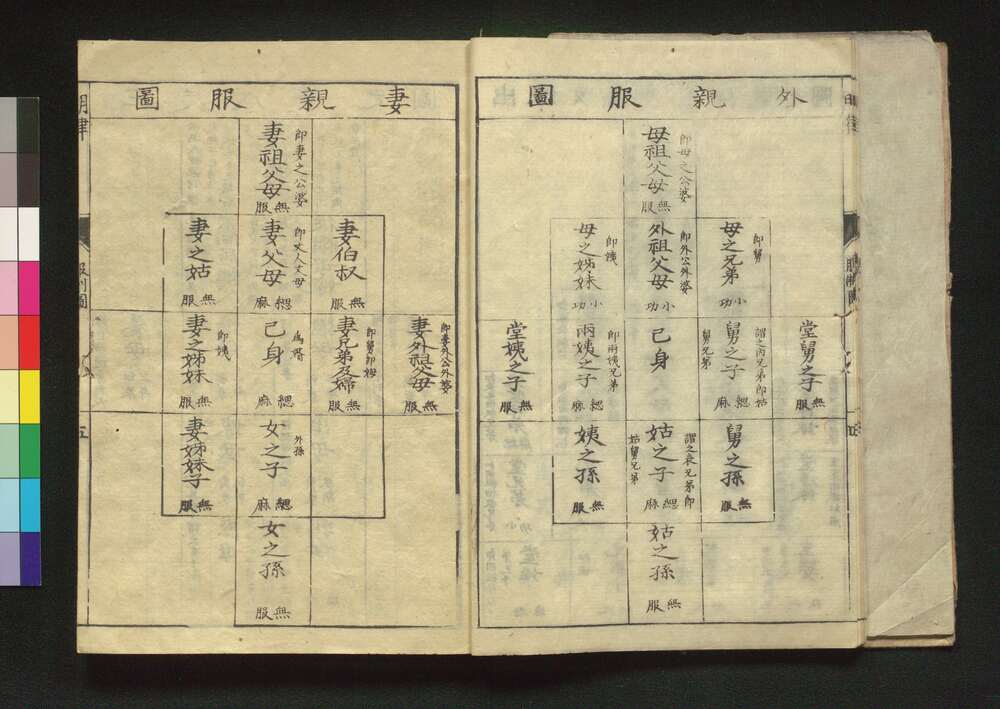 外親服圖
母祖父母
即母之公婆
服無
母之兄弟
即舅
功小
外祖父母
即外公外婆
功小
母之姊妹
即姨
功小
堂舅之子
服無
舅之子
謂之内兄弟即姑
舅兄弟
麻緦
己身
兩姨之子
即兩姨兄弟
麻緦
堂姨之子
服無
舅之孫
服無
姑之子
謂之表兄弟即
姑舅兄弟
麻緦
姨之孫
服無
姑之孫
服無
妻親服圖
妻祖父母
即妻之公婆
服無
妻伯叔
服無
妻父母
即丈人丈母
麻緦
妻之姑
服無
妻外祖父母
即妻外公外婆
服無
妻兄弟及婦
即舅即妗
服無
己身
為壻
麻緦
妻之姊妹
即姨
服無
女之子
外孫
麻緦
妻姊妹子
服無
女之孫
服無
明律
服制圖
五